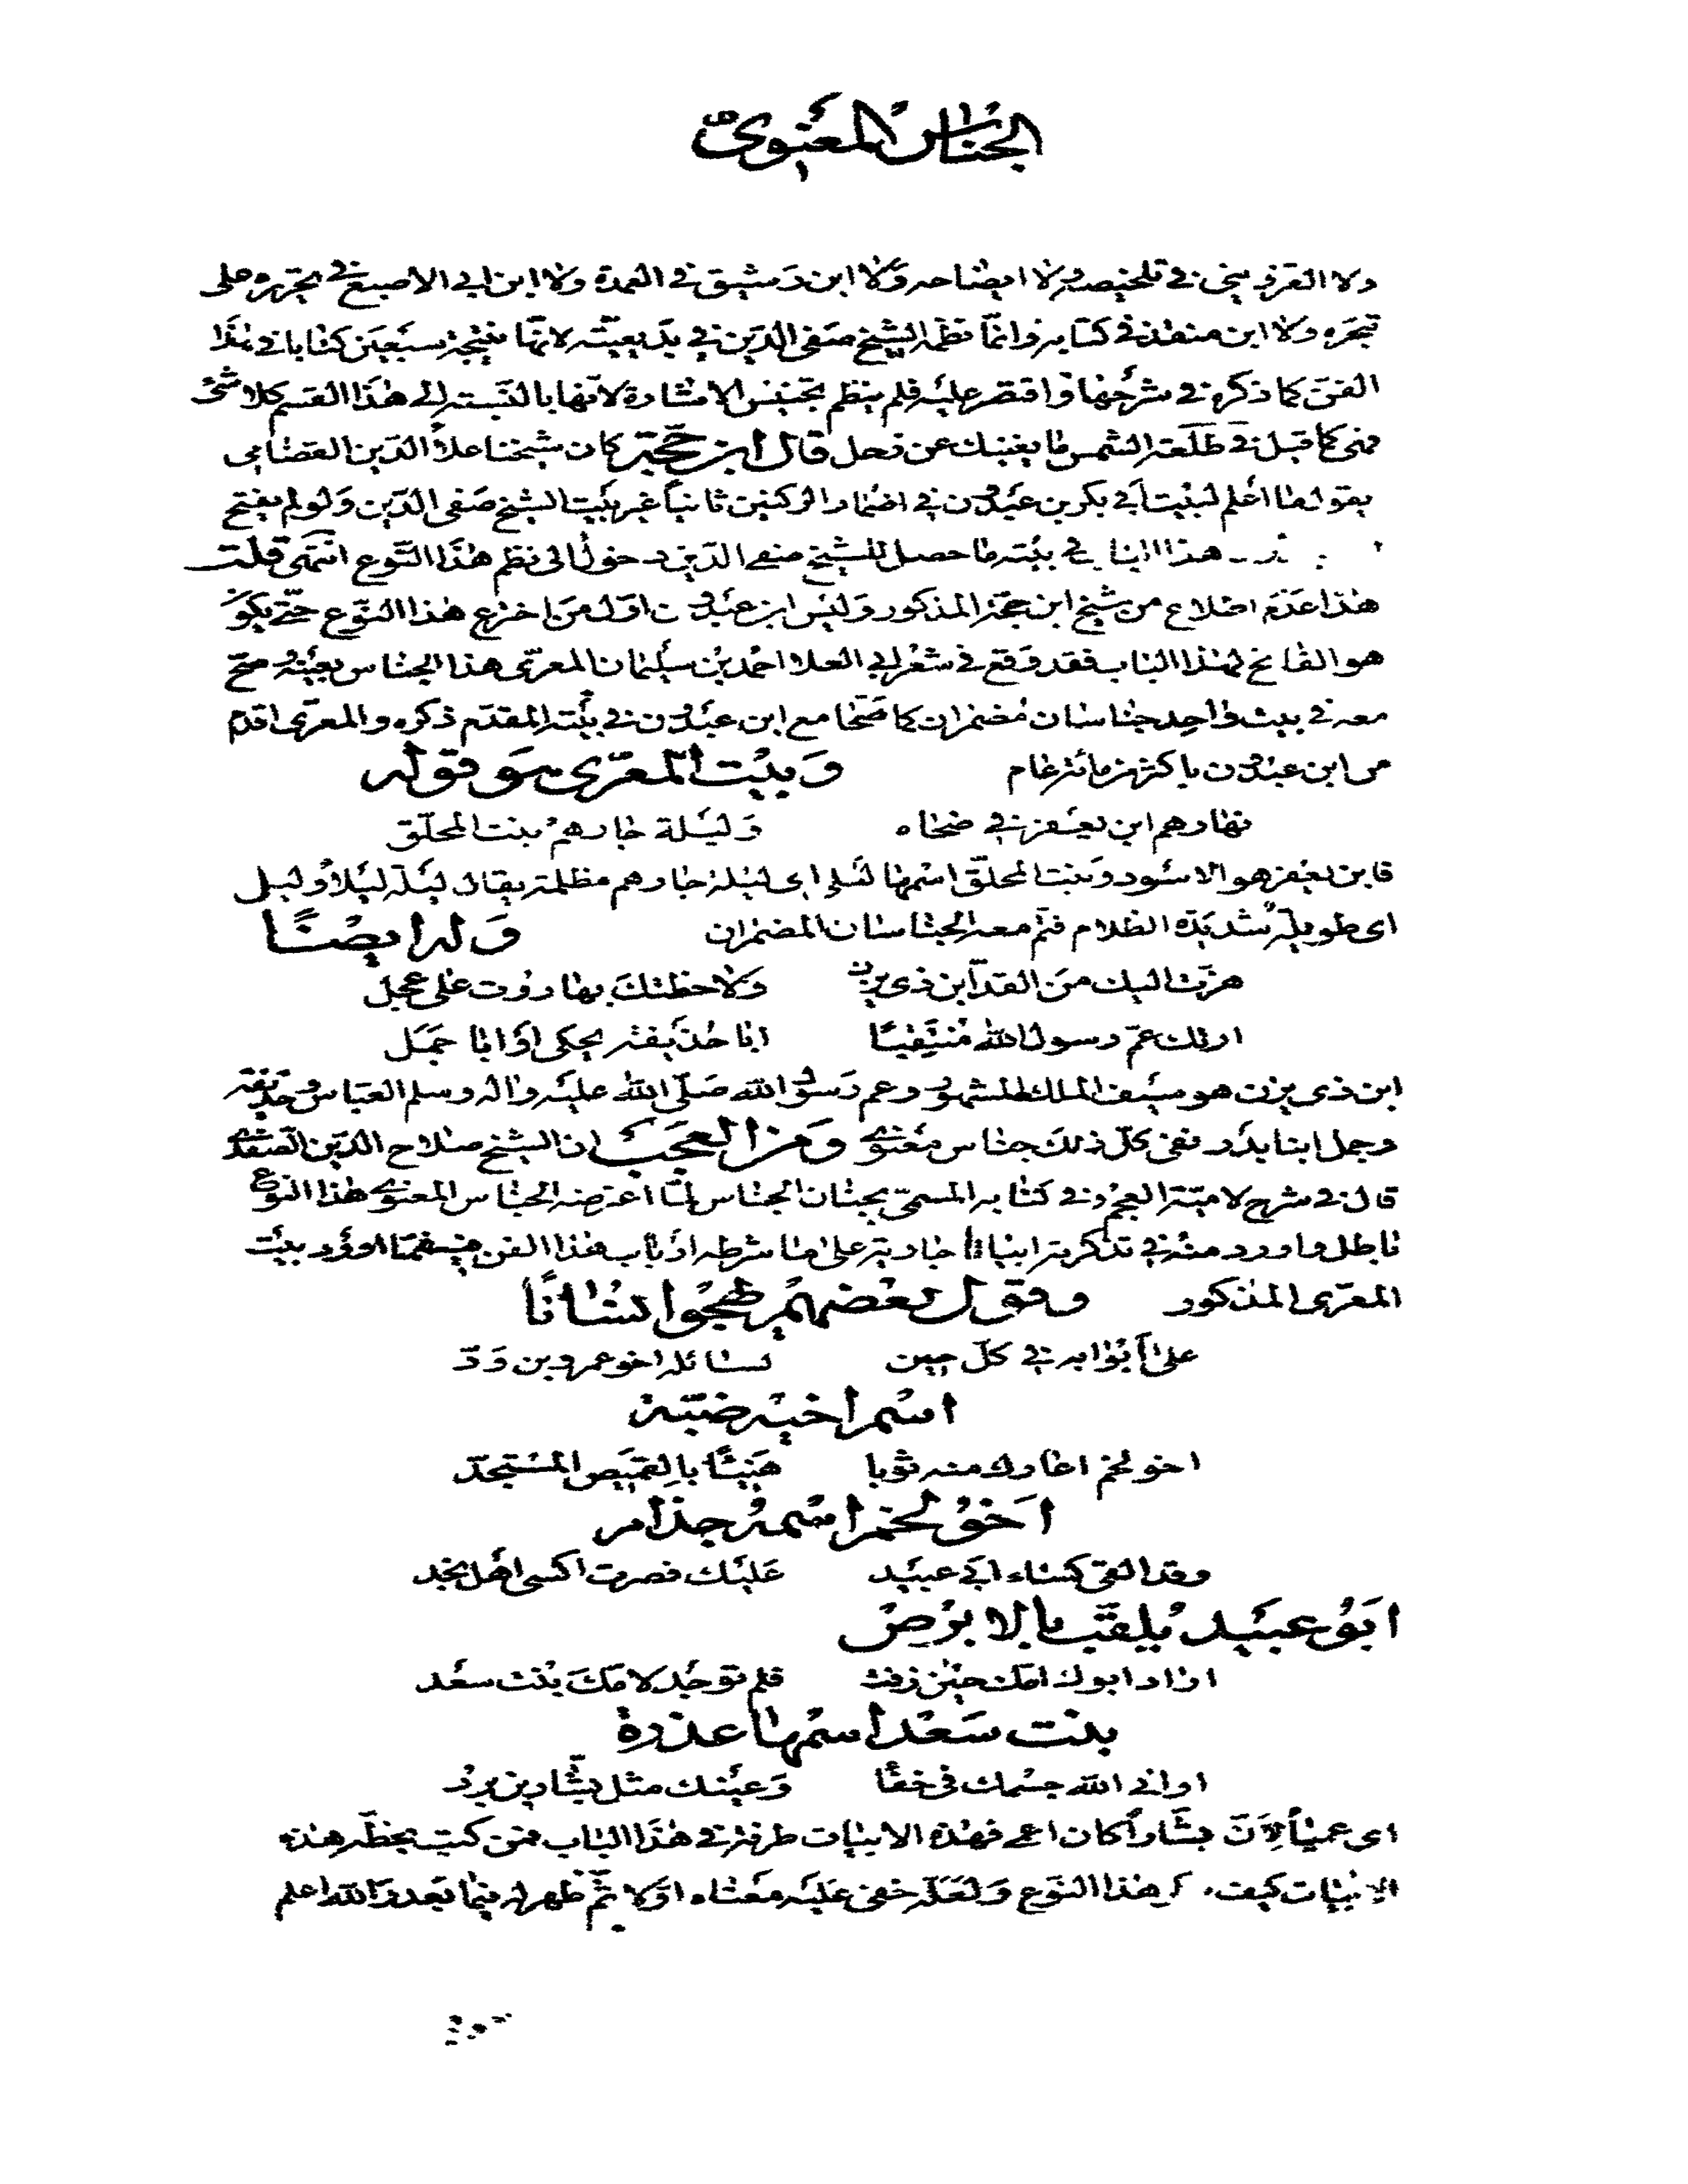 الجناس المعنوي
ولا القزويني في تلخيصه ولا ايضاحه ولا ابن رشيق في العمدة ولا ابن ابي الاصبع في تحريره على
تبحره ولا ابن منقذ في كتابه وانما نظمه الشيخ صفي الدين في بديعيته لانها نتيجة سبعين كتابا في هذا
الفن كما ذكره في شرحها واقتصر عليه فلم ينظم تجنيس الاشارة لانها بالنسبة الى هذا القسم كلا شئ
فهي كما قيل في طلعة الشمس ما يغنيك عن زحل قال ابن حجة كان شيخنا علاء الدين القضامي
يقول ما اعلم لبيت ابي بكر بن عبدون في اضمار الركنين ثانيا غير بيت الشيخ صفي الدين ولو لم يفتح
هذا البا في بيته ما حصل للشيخ صفي الدين دخول الى نظم هذا النوع انتهى قلت
هذا عدم اطلاع من شيخ ابن حجة المذكور وليس ابن عبدون اول من اخترع هذا النوع حتى يكون
هو الفاتح لهذا الباب فقد وقع في شعر ابي العلا احمد بن سليمان المعري هذا الجناس بعينه وصح
معه في بيت واحد جناسان مضمران كما صحا مع ابن عبدون في بيته المقدم ذكره والمعري اقدم
من ابن عبدون باكثر من مائة عام وبيت المعري هو قوله
نهارهم ابن يعفر في ضحاه وليلة جارهم بنت المحلق
فابن يعفر هو الاسود وبنت المحلق اسمها ليلى اي ليلة جارهم مظلمة يقال ليلة ليلاء وليل
اي طويلة شديدة الظلام فتم معه الجناسان المضمران وله ايضا
هزت اليك من القد ابن ذي يزن ولاحظتك بهاروت على عجل
ارتك عم رسول الله منتقبا ابا حذيفة يحكى او ابا جمل
ابن ذي يزن هو سيف الملك المشهور وعم رسول الله صلى الله عليه واله وسلم العباس وحذيفة
وجمل ابنا بدر ففي كل ذلك جناس معنوي ومن العجب ان الشيخ صلاح الدين الصفدي
قال في شرح لامية العجم وفي كتابه المسمى بجنان الجناس لما اعترضه الجناس المعنوي هذا النوع
باطل واورد منه في تذكرته ابياتا جارية على ما شرطه ارباب هذا الفن فيه فمما اورد بيت
المعري المذكور وقول بعضهم هجوا نشانا
على ابوابه في كل حين لسائله اخو عمرو بن ود
اسم اخيه ضبة
اخو لخم اعارك منه ثوبا هنيئا بالقميص المستجد
اخو لخم اسمه جذام
وقد القى كساء ابي عبيد عليك فصرت اكسى اهل نجد
ابو عبيد يلقب بالابرص
اراد ابوك امك حين زفت فلم توجد لامك بنت سعد
بنت سعد اسمها عذرة
اراني الله جسمك في خفا وعينك مثل بشار بن برد
اي عميا لان بشارا كان اعمى فهذه الابيات طرفة في هذا الباب فمن كتب بخطه هذه
الابيات كيف هذا النوع ولعله خفى عليه معناه اولا ثم ظهر له فيما بعد والله اعلم